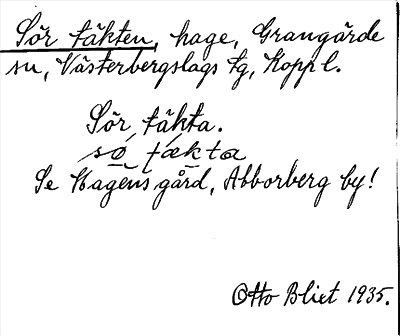 Sör täkten, hage, Grangärde
sn, Västerbergslags tg, Kopp l.
Sör täkta.
sø̄ tækta
Se Hagens gård, Abborberg by!
Otto Blixt 1935.